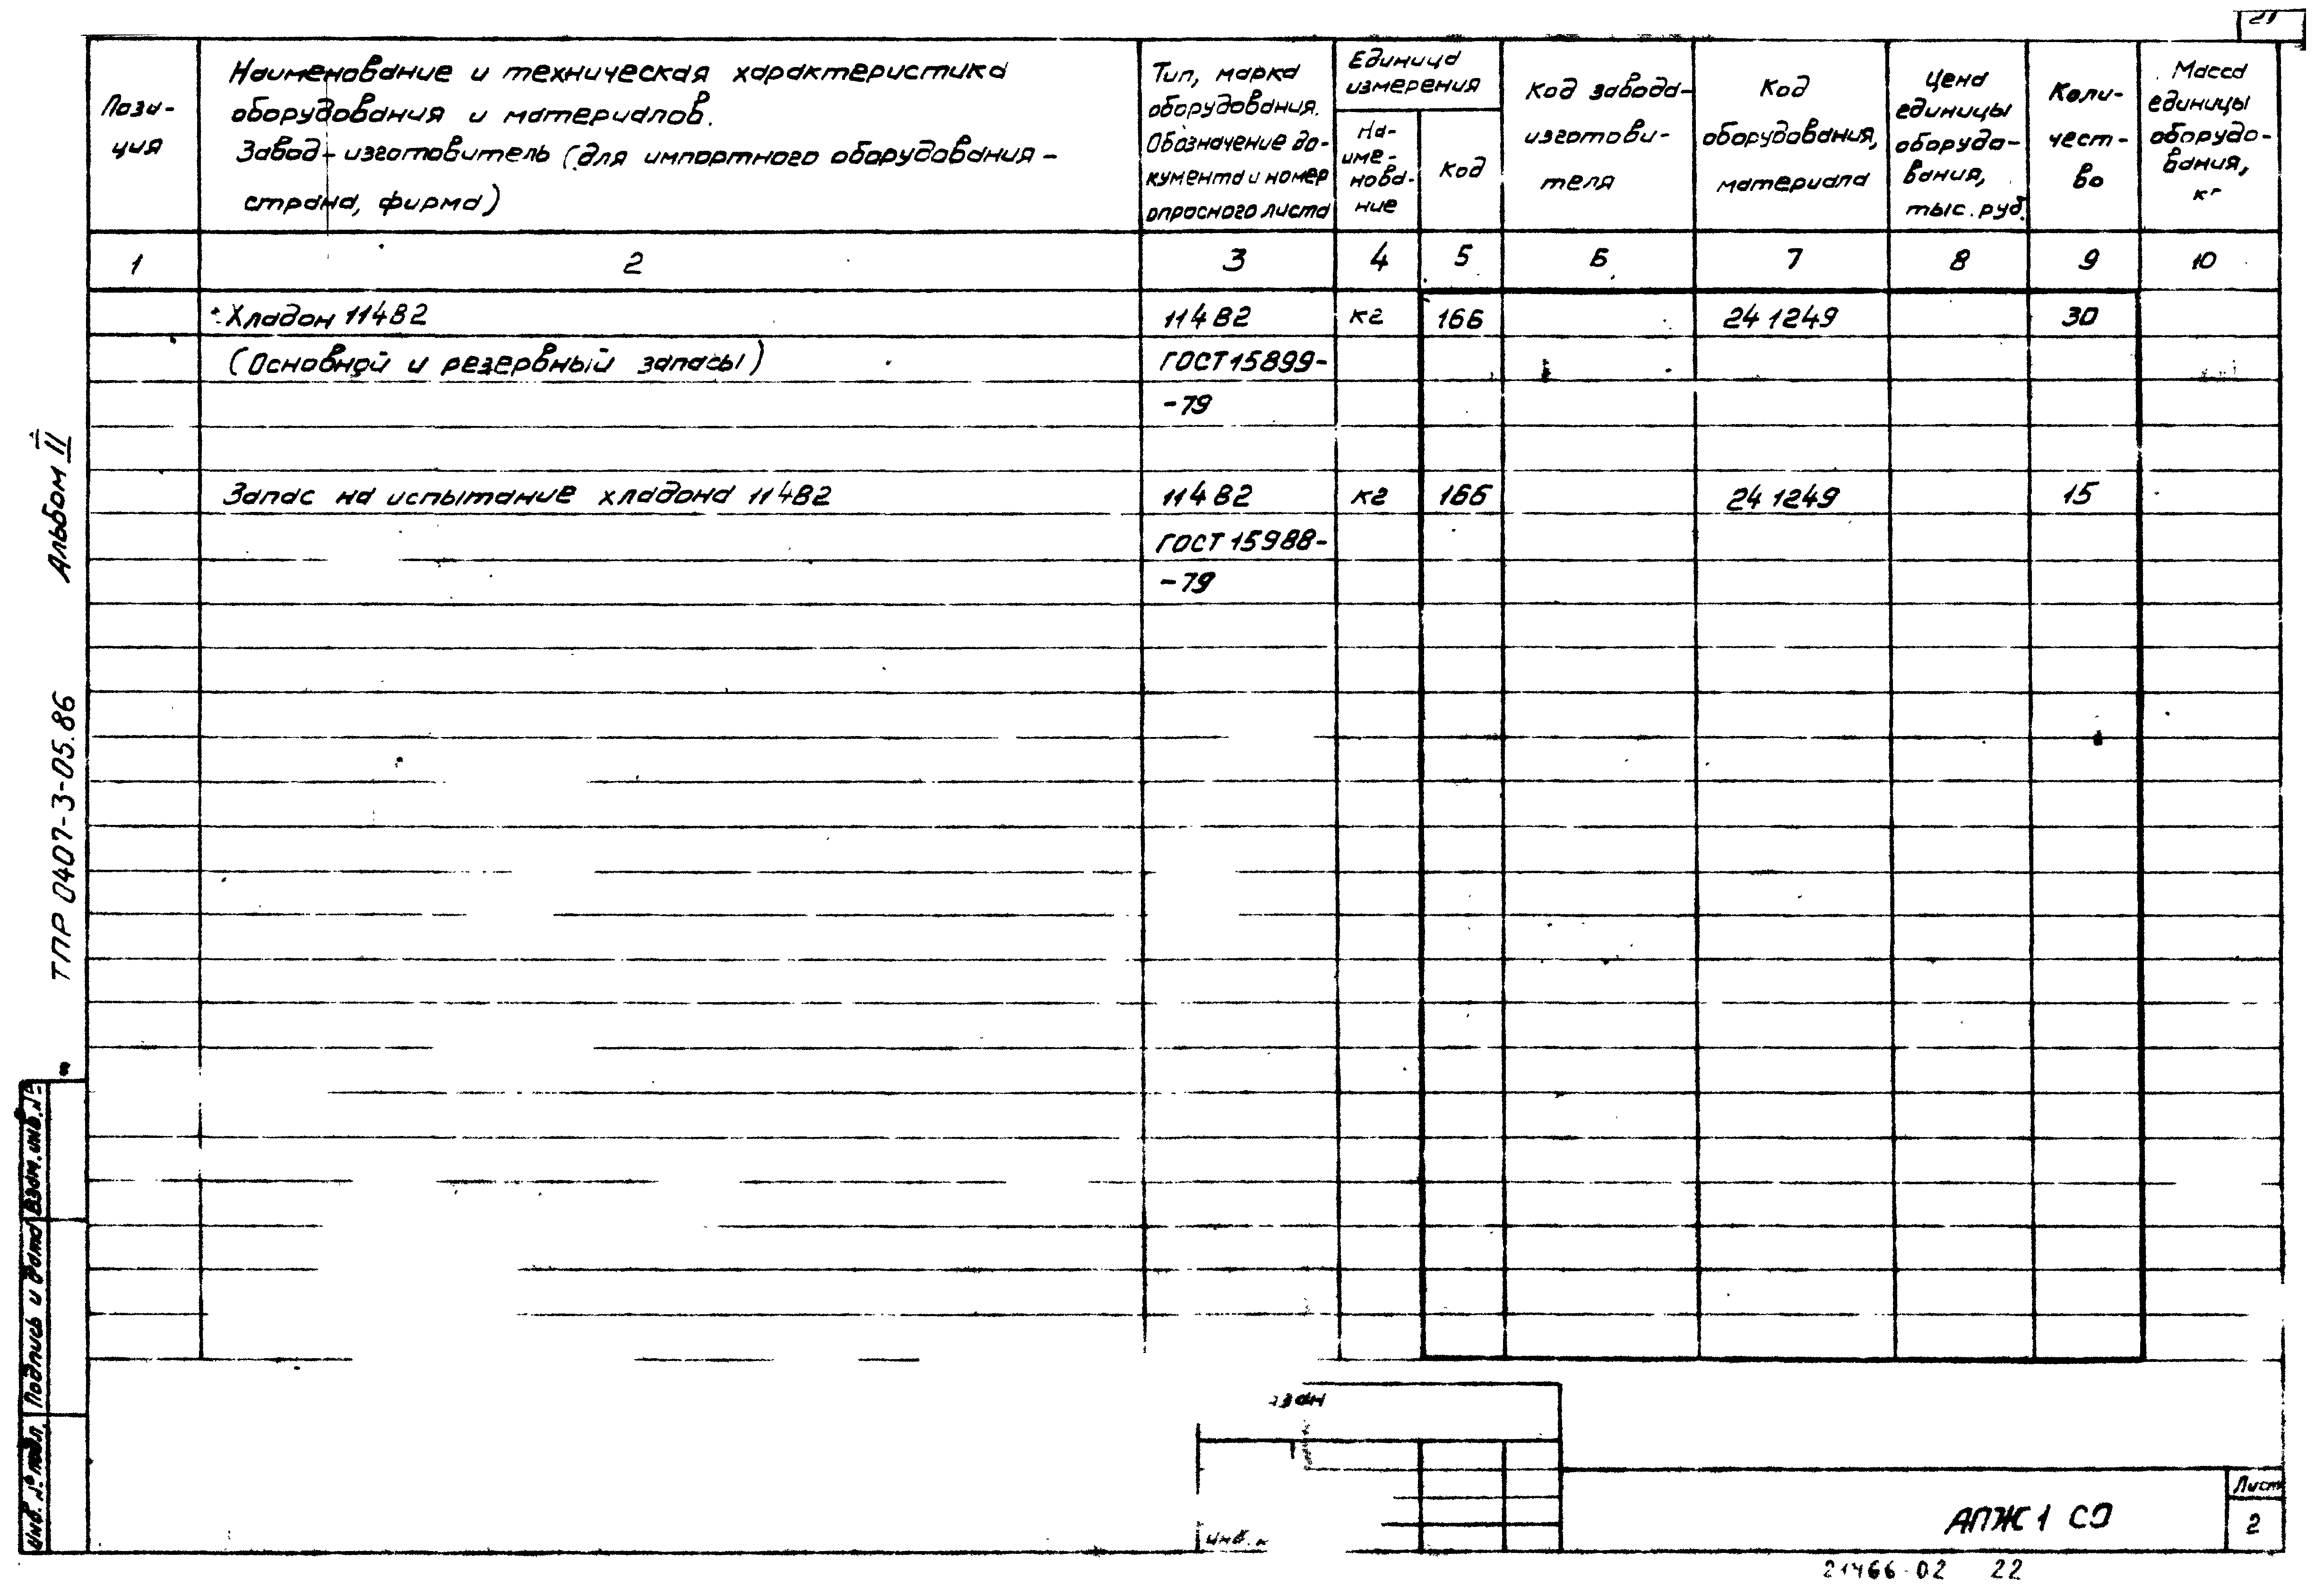 21
Пози-
ция
Наименование и техническая характеристика
оборудования и материалов.
Завод-изготовитель (для импортного оборудования -
страна, фирма)
Тип, марка
оборудования.
Обозначение до-
кумента и номер
опросного листа
Единица
измерения
На-
име-
нова-
ние
Код
Код завода-
изготови-
теля
Код
оборудования,
материала
Цена
единицы
оборудо-
вания,
тыс. руб.
Коли-
чест-
во
Масса
единицы
оборудо-
вания,
кг
1 2 3 4 5 6 7 8 9 10
Хладон 114В2 114В2 кг 166 24 1249 30
(Основной и резервный запасы) ГОСТ 15899-
-79
Запас на испытание хладона 114В2 114В2 кг 166 24 1249 15
ГОСТ 15988-
-79
Альбом II
ТПР 0407-3-05.86
Взам. инв. №
Подпись и дата
Инв. № подл.
инв.
АПЖ1 СО
Лист
2
21466-02 22